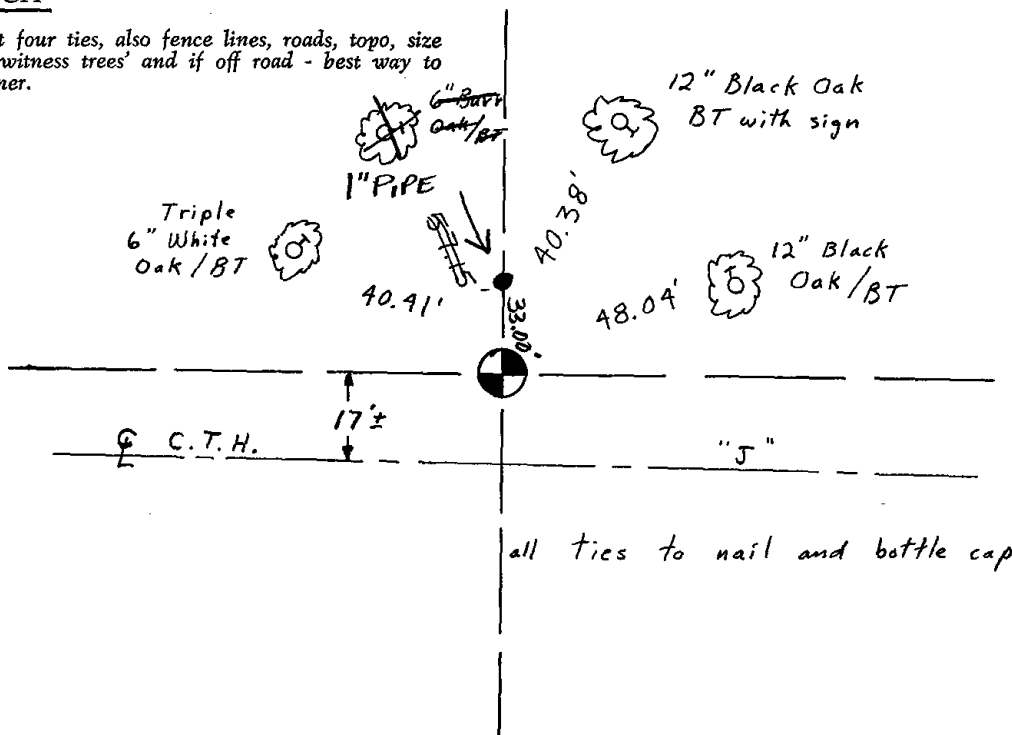 t four ties, also fence lines, roads, topo, size
witness trees' and if off road - best way to
ner.
6" Burr
Oak/BT
1" PIPE
12" Black Oak
BT with sign
Triple
6" White
Oak/BT
40.38'
12" Black
Oak/BT
40.41'
48.04'
33.00'
17'±
℄ C.T.H. "J"
all ties to nail and bottle cap